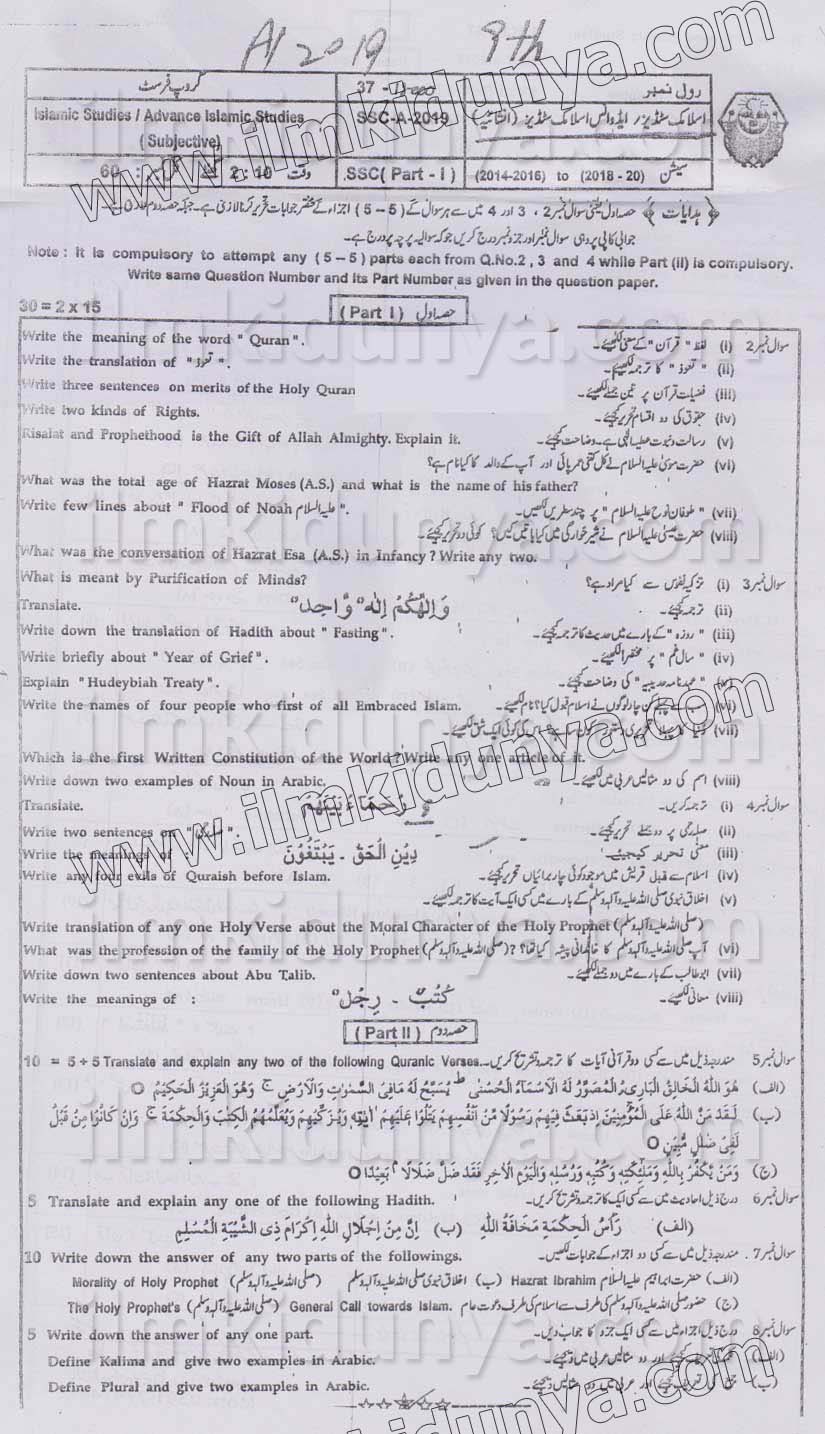 A1 2019 9th
رول نمبر 37 گروپ فرسٹ
اسلامک سٹڈیز / ایڈوانس اسلامک سٹڈیز (انشائیہ) SSC-A-2019 Islamic Studies / Advance Islamic Studies (Subjective)
سیشن (2014-2016) to (2018 - 20) SSC( Part - I ) وقت 2:10 60
﴿ ہدایات ﴾ حصہ اول یعنی سوال نمبر 2 ، 3 اور 4 میں سے ہر سوال کے ( 5 – 5 ) اجزاء کے مختصر جوابات تحریر کرنا لازمی ہے۔ جبکہ حصہ دوم
جوابی کاپی پر وہی سوال نمبر اور جزو نمبر درج کریں جو کہ سوالیہ پرچہ پر درج ہے۔
Note : It is compulsory to attempt any ( 5 – 5 ) parts each from Q.No.2 , 3 and 4 while Part (II) is compulsory.
Write same Question Number and its Part Number as given in the question paper.
30 = 2 x 15 ( Part I ) حصہ اول
Write the meaning of the word " Quran ". سوال نمبر 2 (i) لفظ " قرآن " کے معنی لکھیئے۔
Write the translation of " تعوذ ". (ii) " تعوذ " کا ترجمہ لکھیئے۔
Write three sentences on merits of the Holy Quran (iii) فضیلت قرآن پر تین جملے لکھیئے۔
Write two kinds of Rights. (iv) حقوق کی دو اقسام تحریر کیجئے۔
Risalat and Prophethood is the Gift of Allah Almighty. Explain it. (v) رسالت و نبوت عطیہ الٰہی ہے۔ وضاحت کیجئے۔
(vi) حضرت موسیٰ علیہ السلام نے کل کتنی عمر پائی اور آپ کے والد کا کیا نام ہے؟
What was the total age of Hazrat Moses (A.S.) and what is the name of his father?
Write few lines about " Flood of Noah علیہ السلام ". (vii) " طوفانِ نوح علیہ السلام " پر چند سطریں لکھیں۔
(viii) حضرت عیسیٰ علیہ السلام نے شیر خوارگی میں کیا باتیں کیں؟ کوئی دو تحریر کیجئے۔
What was the conversation of Hazrat Esa (A.S.) in Infancy ? Write any two.
What is meant by Purification of Minds? سوال نمبر 3 (i) تزکیہ نفوس سے کیا مراد ہے؟
Translate. وَاِلٰهُكُمْ اِلٰهٌ وَّاحِدٌ (ii) ترجمہ کیجئے۔
Write down the translation of Hadith about " Fasting ". (iii) " روزہ " کے بارے میں حدیث کا ترجمہ لکھیئے۔
Write briefly about " Year of Grief ". (iv) " سالِ غم " پر مختصراً لکھیئے۔
Explain " Hudeybiah Treaty ". (v) " عہد نامہ حدیبیہ " کی وضاحت کیجئے۔
Write the names of four people who first of all Embraced Islam. (vi) چار لوگوں نے اسلام قبول کیا؟ نام لکھیئے۔
(vii) کوئی ایک شق لکھیئے۔
Which is the first Written Constitution of the World ? Write any one article of it.
Write down two examples of Noun in Arabic. (viii) اسم کی دو مثالیں عربی میں لکھیئے۔
Translate. رُحَمَاءُ بَيْنَهُمْ سوال نمبر 4 (i) ترجمہ کریں۔
Write two sentences on " صلہ رحمی ". (ii) صلہ رحمی پر دو جملے تحریر کیجئے۔
Write the meanings of : دِيْنِ الْحَقِّ ـ يَبْتَغُوْنَ (iii) معنی تحریر کیجیئے۔
Write any four evils of Quraish before Islam. (iv) اسلام سے قبل قریش میں موجود کوئی چار برائیاں تحریر کیجئے۔
(v) اخلاق نبوی صلی اللہ علیہ وآلہ وسلم کے بارے میں کسی ایک آیت کا ترجمہ لکھیئے۔
Write translation of any one Holy Verse about the Moral Character of the Holy Prophet (صلی اللہ علیہ وآلہ وسلم)
What was the profession of the family of the Holy Prophet (صلی اللہ علیہ وآلہ وسلم) ? (vi) آپ صلی اللہ علیہ وآلہ وسلم کا خاندانی پیشہ کیا تھا؟
Write down two sentences about Abu Talib. (vii) ابو طالب کے بارے میں دو جملے لکھیئے۔
Write the meanings of : كُتُبٌ ـ رَجُلٌ (viii) معانی لکھیئے۔
( Part II ) حصہ دوم
10 = 5 + 5 Translate and explain any two of the following Quranic Verses. سوال نمبر 5 مندرجہ ذیل میں سے کسی دو قرآنی آیات کا ترجمہ و تشریح کریں۔
(الف) هُوَ اللّٰهُ الْخَالِقُ الْبَارِئُ الْمُصَوِّرُ لَهُ الْاَسْمَآءُ الْحُسْنٰى ط يُسَبِّحُ لَهُ مَافِى السَّمٰوٰتِ وَالْاَرْضِ ج وَهُوَ الْعَزِيْزُ الْحَكِيْمُ
(ب) لَقَدْ مَنَّ اللّٰهُ عَلَى الْمُؤْمِنِيْنَ اِذْبَعَثَ فِيْهِمْ رَسُوْلًا مِّنْ اَنْفُسِهِمْ يَتْلُوْا عَلَيْهِمْ اٰيٰتِهٖ وَيُزَكِّيْهِمْ وَيُعَلِّمُهُمُ الْكِتٰبَ وَالْحِكْمَةَ ج وَاِنْ كَانُوْا مِنْ قَبْلُ
لَفِىْ ضَلٰلٍ مُّبِيْنٍ
(ج) وَمَنْ يَّكْفُرْ بِاللّٰهِ وَمَلٰٓئِكَتِهٖ وَكُتُبِهٖ وَرُسُلِهٖ وَالْيَوْمِ الْاٰخِرِ فَقَدْ ضَلَّ ضَلَالًا بَعِيْدًا
5 Translate and explain any one of the following Hadith. سوال نمبر 6 درج ذیل احادیث میں سے کسی ایک کا ترجمہ و تشریح کریں۔
(الف) رَأْسُ الْحِكْمَةِ مَخَافَةُ اللّٰهِ (ب) اِنَّ مِنْ اِجْلَالِ اللّٰهِ اِكْرَامَ ذِى الشَّيْبَةِ الْمُسْلِمِ
10 Write down the answer of any two parts of the followings. سوال نمبر 7. مندرجہ ذیل میں سے کسی دو اجزاء کے جوابات لکھیں۔
(الف) حضرت ابراہیم علیہ السلام Hazrat Ibrahim (ب) اخلاق نبوی صلی اللہ علیہ وآلہ وسلم (صلی اللہ علیہ وآلہ وسلم) Morality of Holy Prophet
(ج) حضور صلی اللہ علیہ وآلہ وسلم کی طرف سے اسلام کی طرف دعوت عام The Holy Prophet's (صلی اللہ علیہ وآلہ وسلم) General Call towards Islam.
5 Write down the answer of any one part. سوال نمبر 8 درج ذیل اجزاء میں سے کسی ایک جزو کا جواب دیں۔
Define Kalima and give two examples in Arabic. (الف) دو مثالیں عربی میں دیجیئے۔
Define Plural and give two examples in Arabic. (ب) جمع کی تعریف کیجئے اور عربی میں دو مثالیں دیجیئے۔
www.ilmkidunya.com